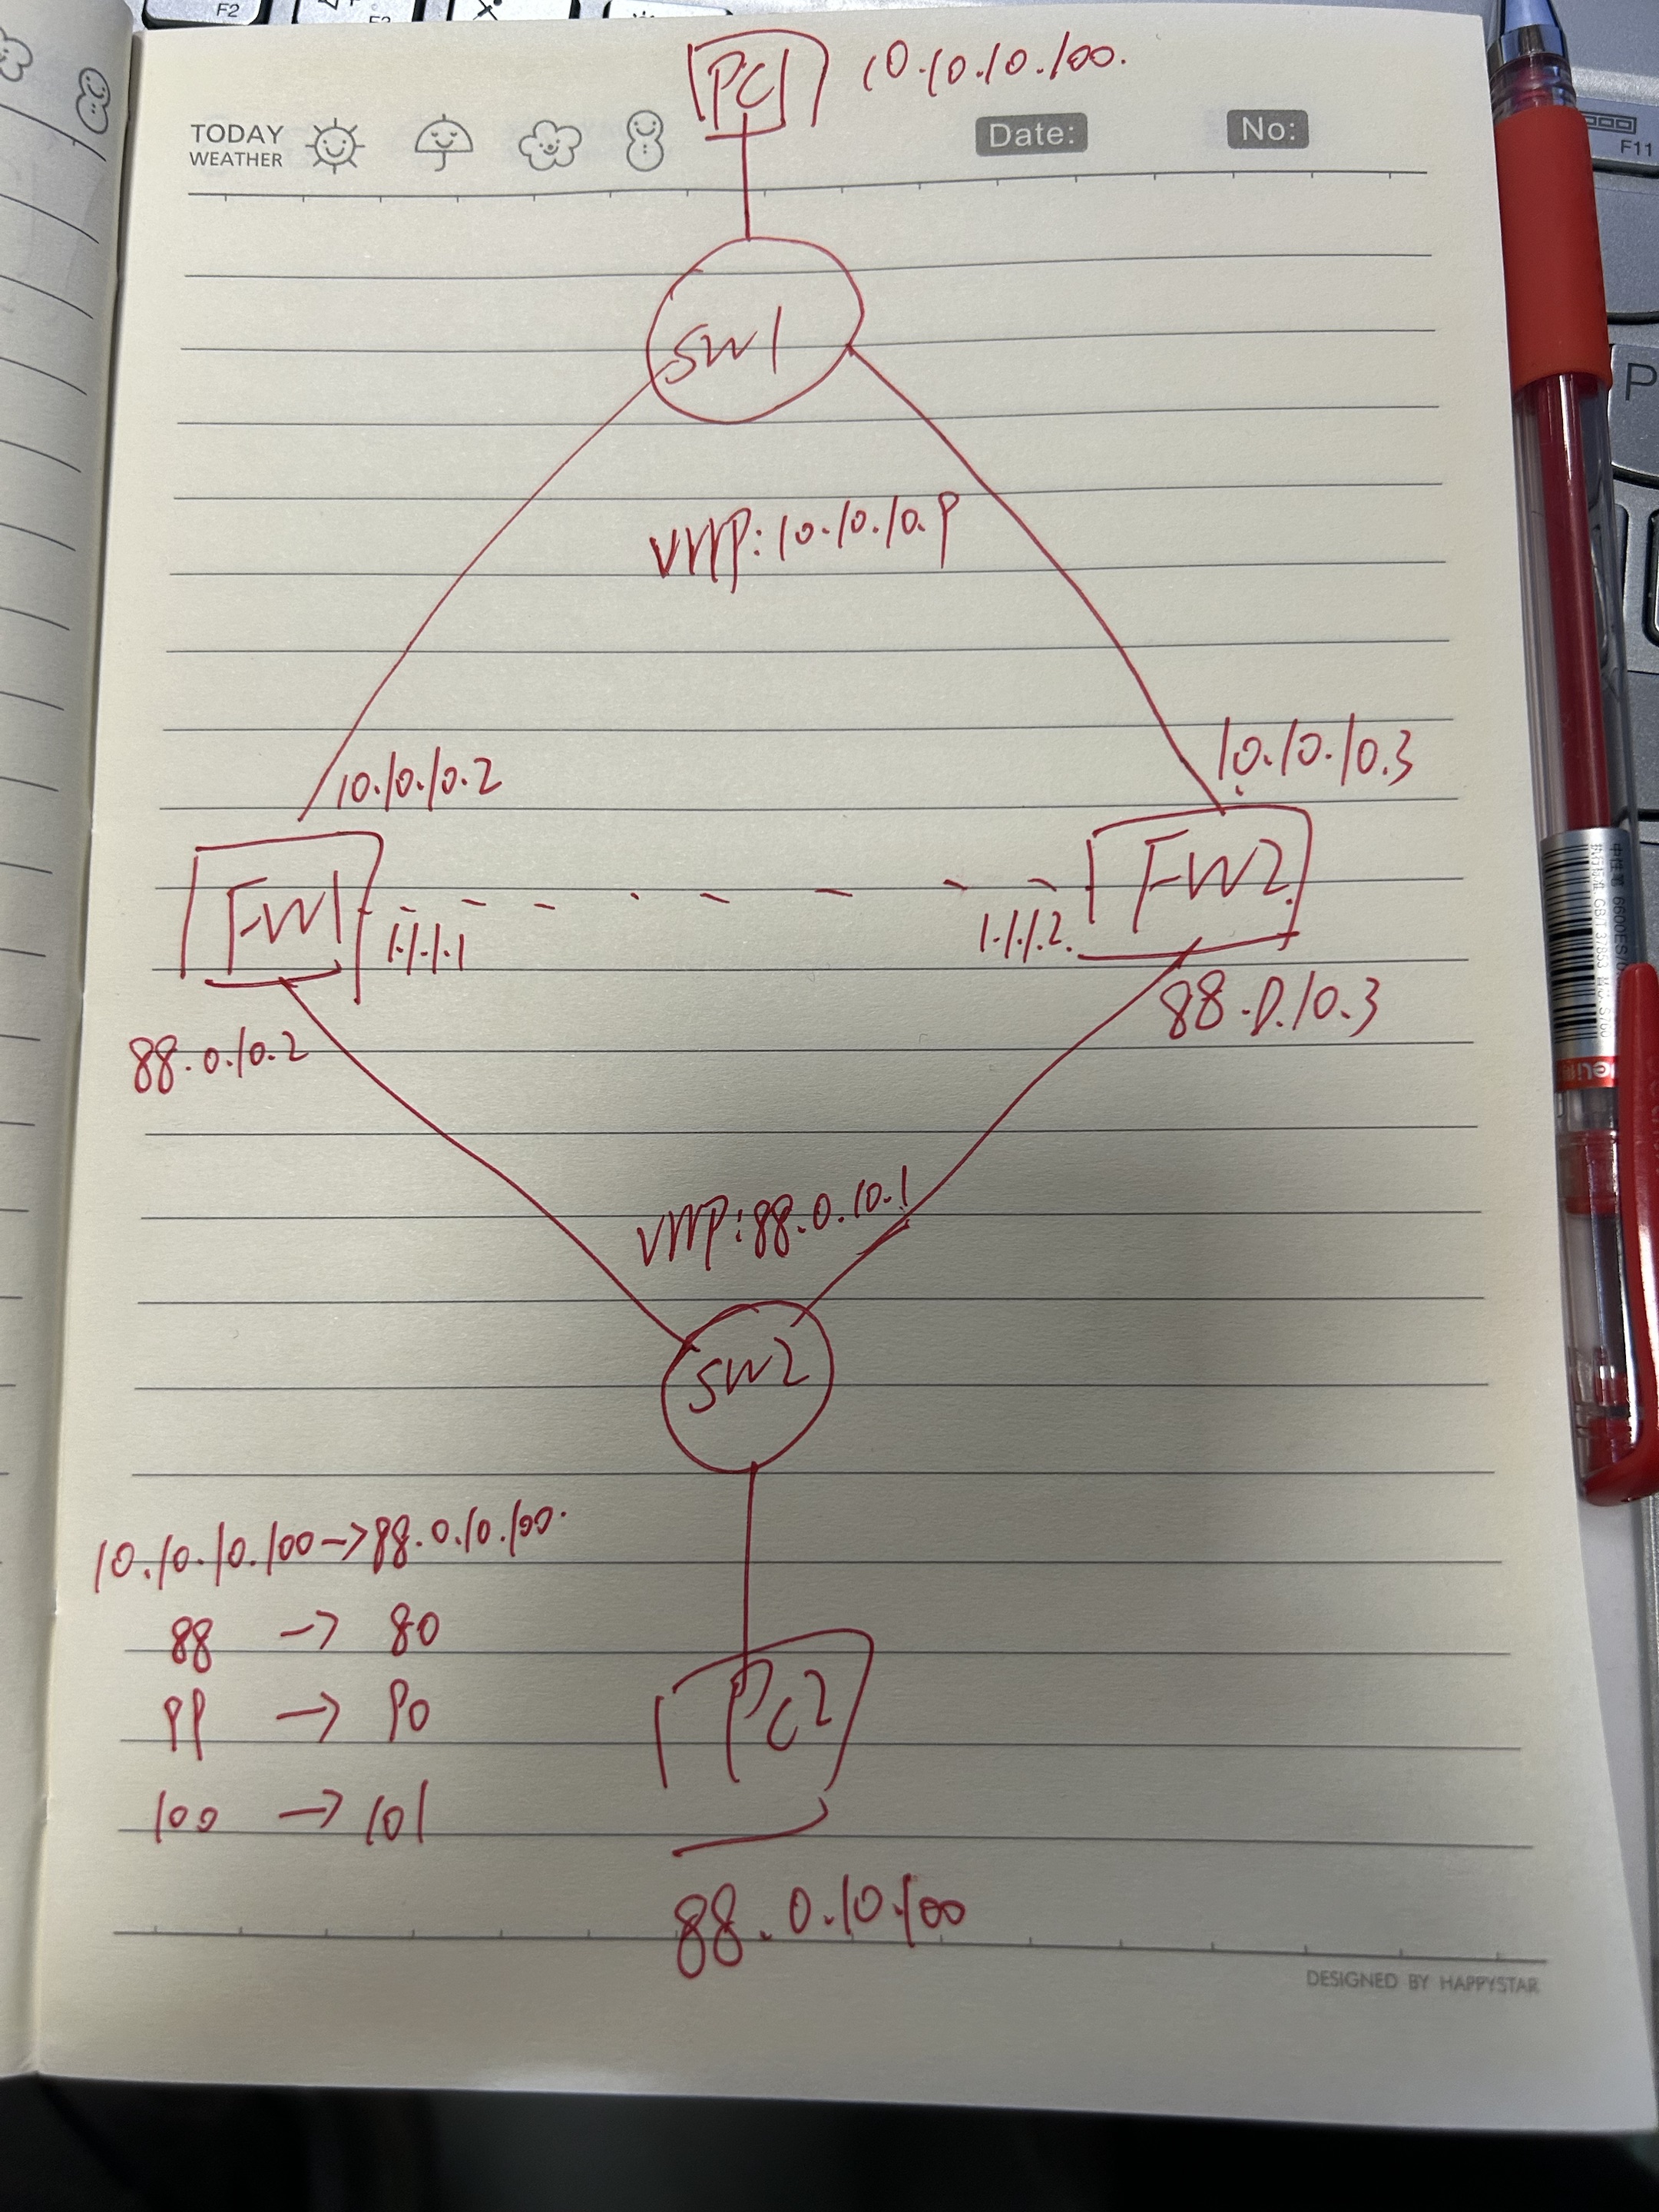 F2
F3
F11
P
PC1 10.10.10.100.
TODAY
WEATHER
Date:
No:
SW1
vrrp:10.10.10.9
10.10.10.2
10.10.10.3
FW1
FW2
1.1.1.1
1.1.1.2.
88.0.10.2
88.0.10.3
vrrp:88.0.10.1
SW2
10.10.10.100->88.0.10.100.
88 -> 80
99 -> 90
100 -> 101
PC2
88.0.10.100
DESIGNED BY HAPPYSTAR